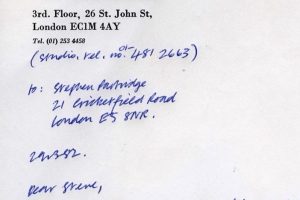 3rd. Floor, 26 St. John St,
London EC1M 4AY
Tel. (01) 253 4458
(studio. tel. no. 01-481 2663)
to: Stephen Partridge
21 Cricketfield Road
London E5 8NR.
29.3.82.
Dear Steve,